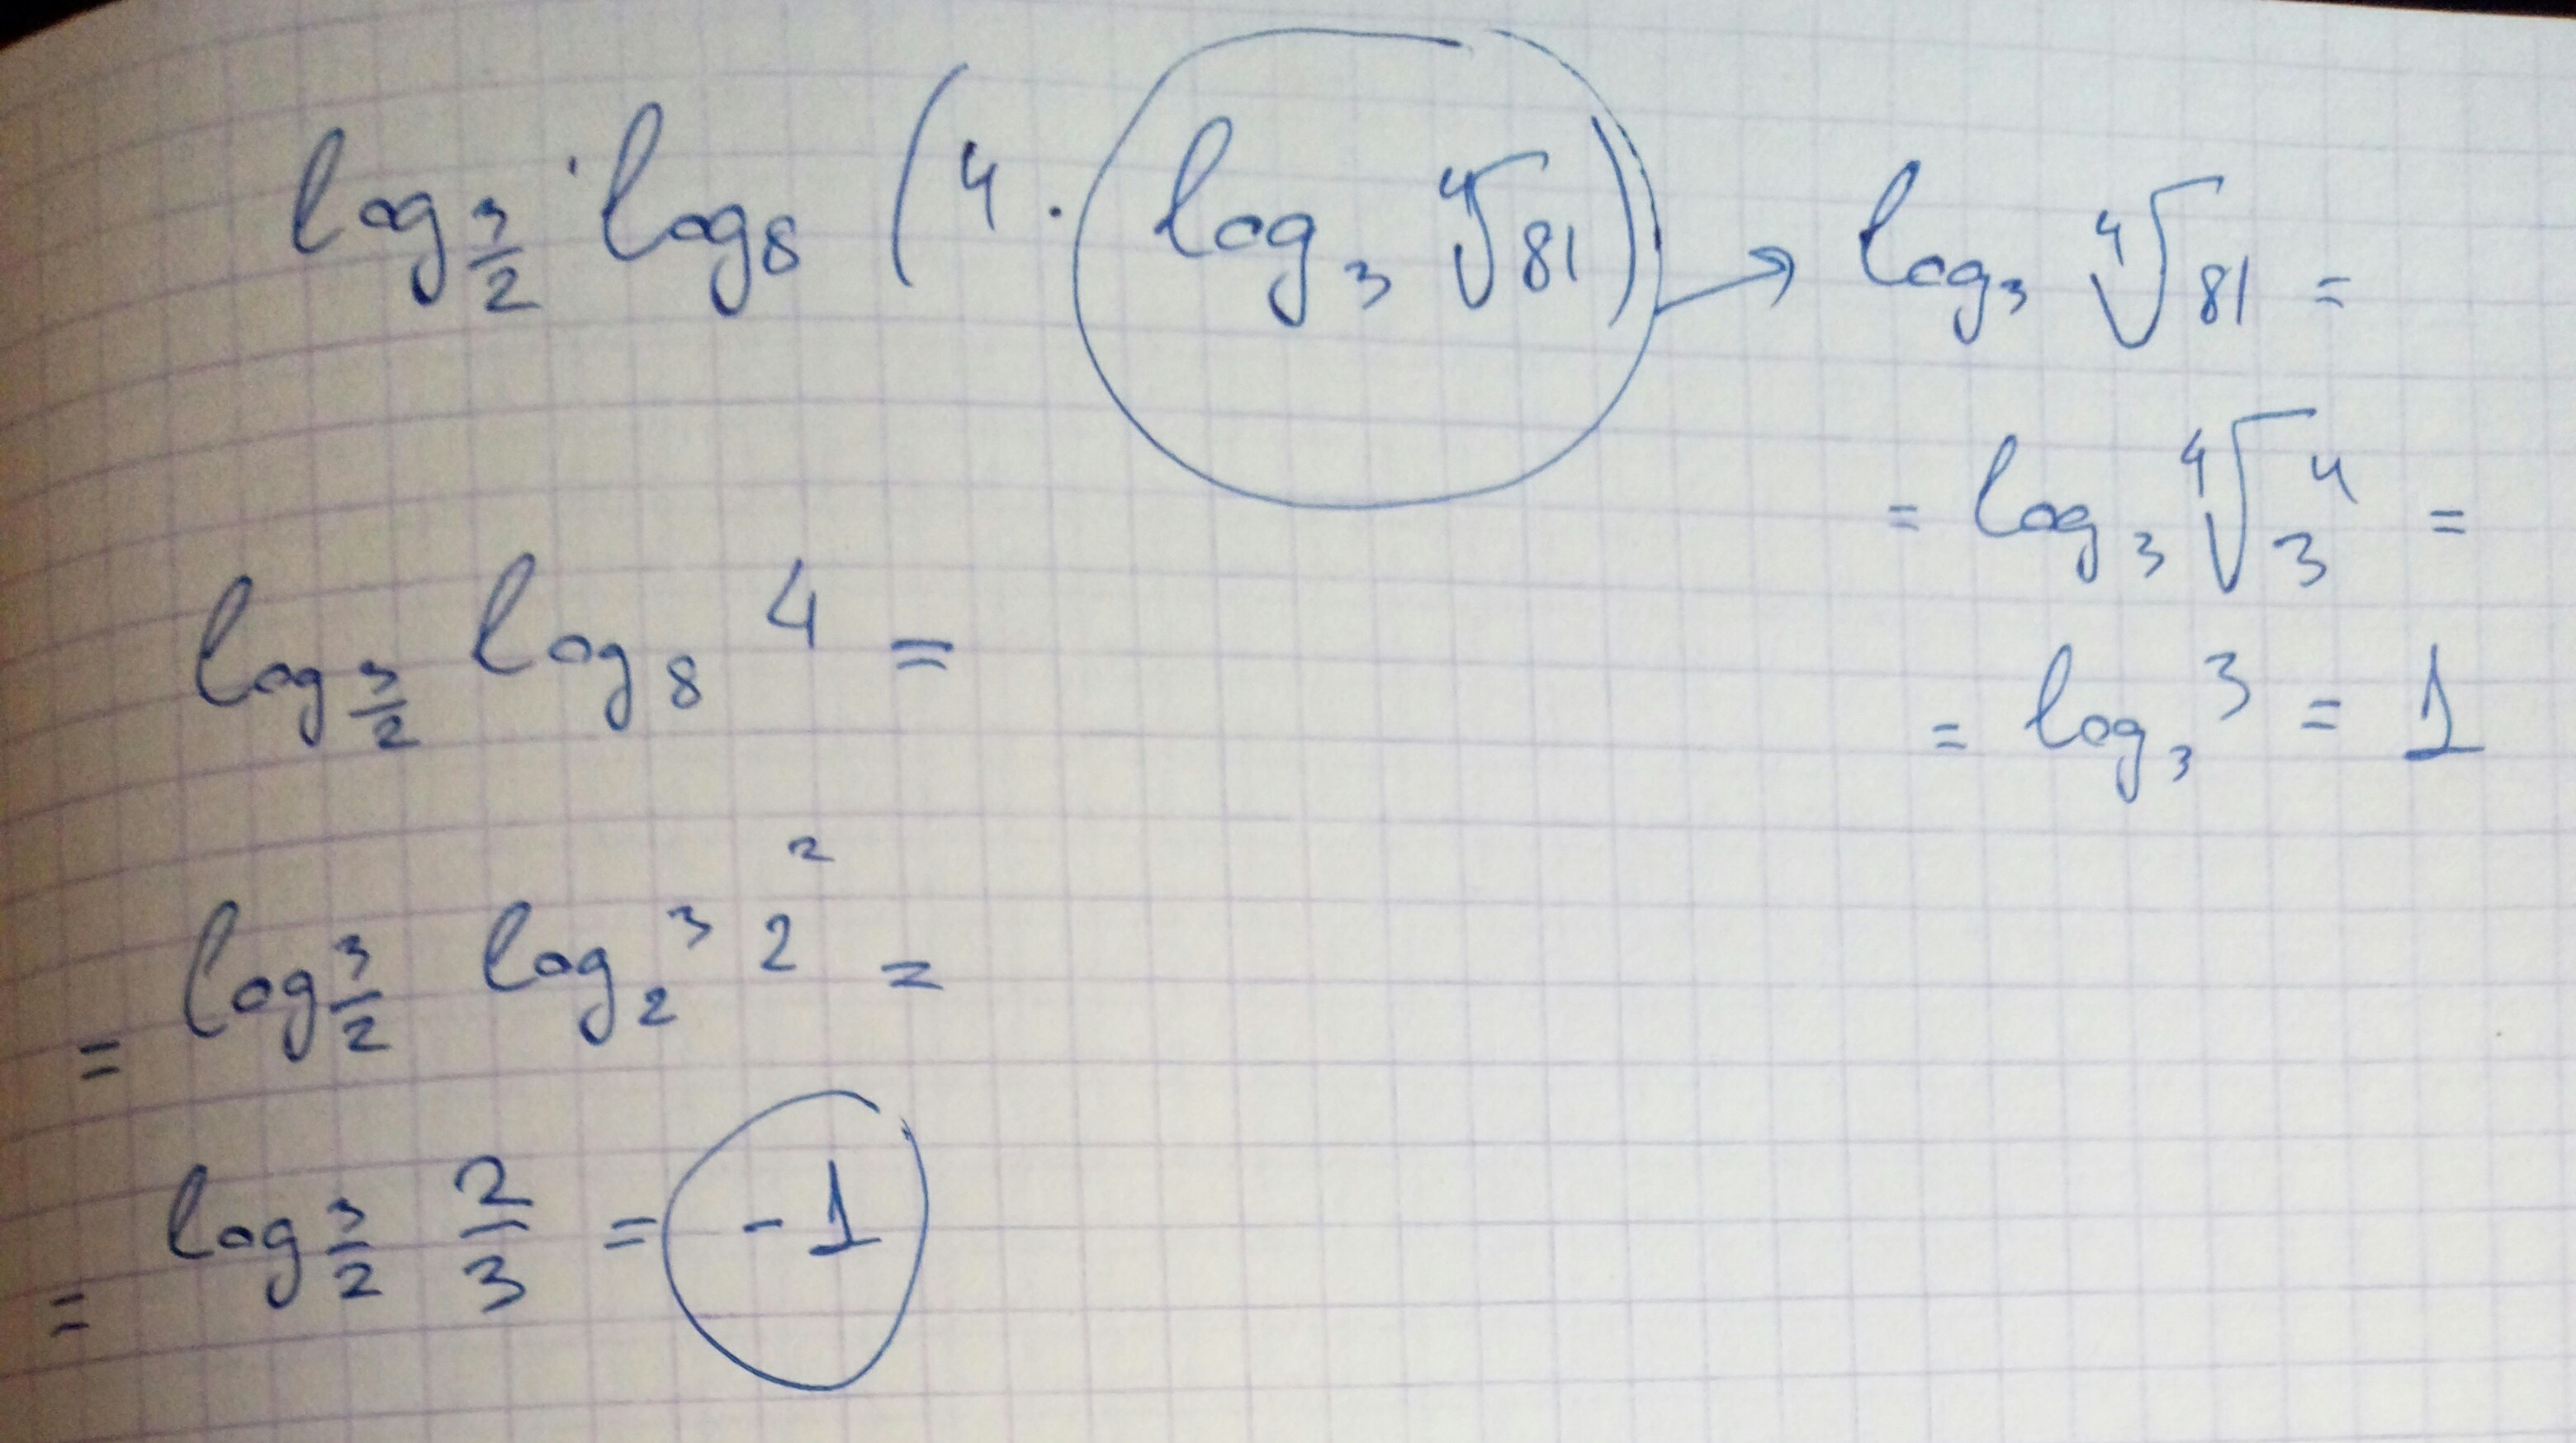 log_{3/2} log_8 (4 · log_3 ∜81) → log_3 ∜81 =
= log_3 ∜3^4 =
= log_3 3 = 1
log_{3/2} log_8 4 =
= log_{3/2} log_{2^3} 2^2 =
= log_{3/2} 2/3 = -1